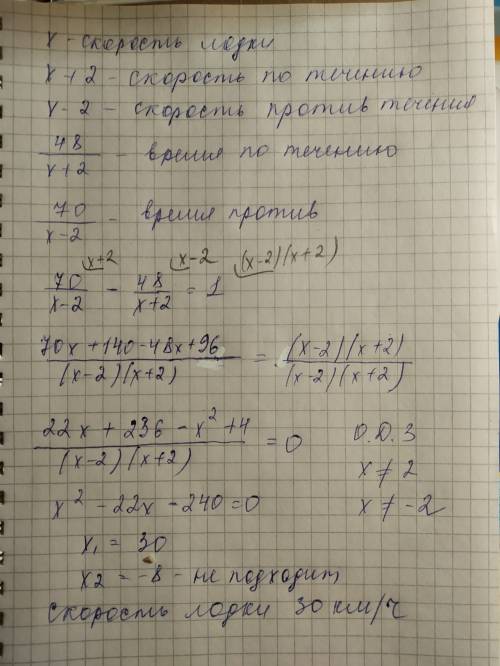 x - скорость лодки
x + 2 - скорость по течению
x - 2 - скорость против течения
48/(x+2) - время по течению
70/(x-2) - время против
x+2 x-2 (x-2)(x+2)
70/(x-2) - 48/(x+2) = 1
(70x + 140 - 48x + 96)/((x-2)(x+2)) = ((x-2)(x+2))/((x-2)(x+2))
(22x + 236 - x² + 4)/((x-2)(x+2)) = 0 О.Д.З
x ≠ 2
x² - 22x - 240 = 0 x ≠ -2
x₁ = 30
x2 = -8 - не подходит
скорость лодки 30 км/ч